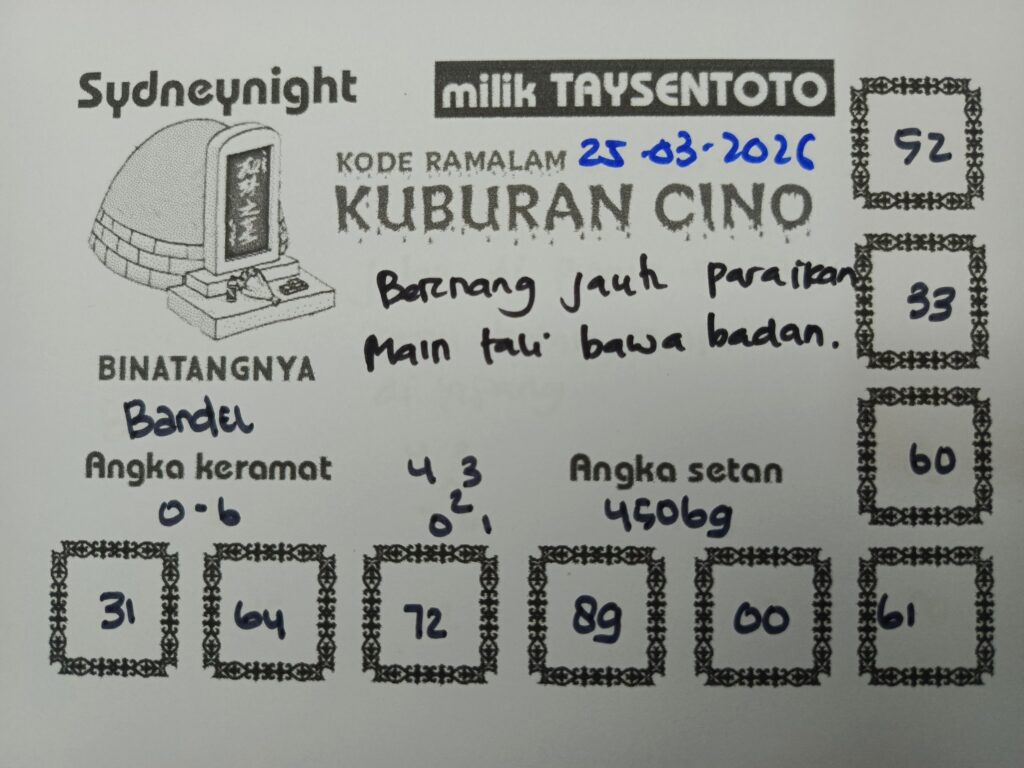 Sydneynight
milik TAYSENTOTO
KODE RAMALAM 25-03-2026
KUBURAN CINO
Berenang jauh para ikan
Main tali bawa badan.
BINATANGNYA
Bandel
Angka keramat
0-6
4 3
2
0 1
Angka setan
45069
52
33
60
31 64 72 89 00 61